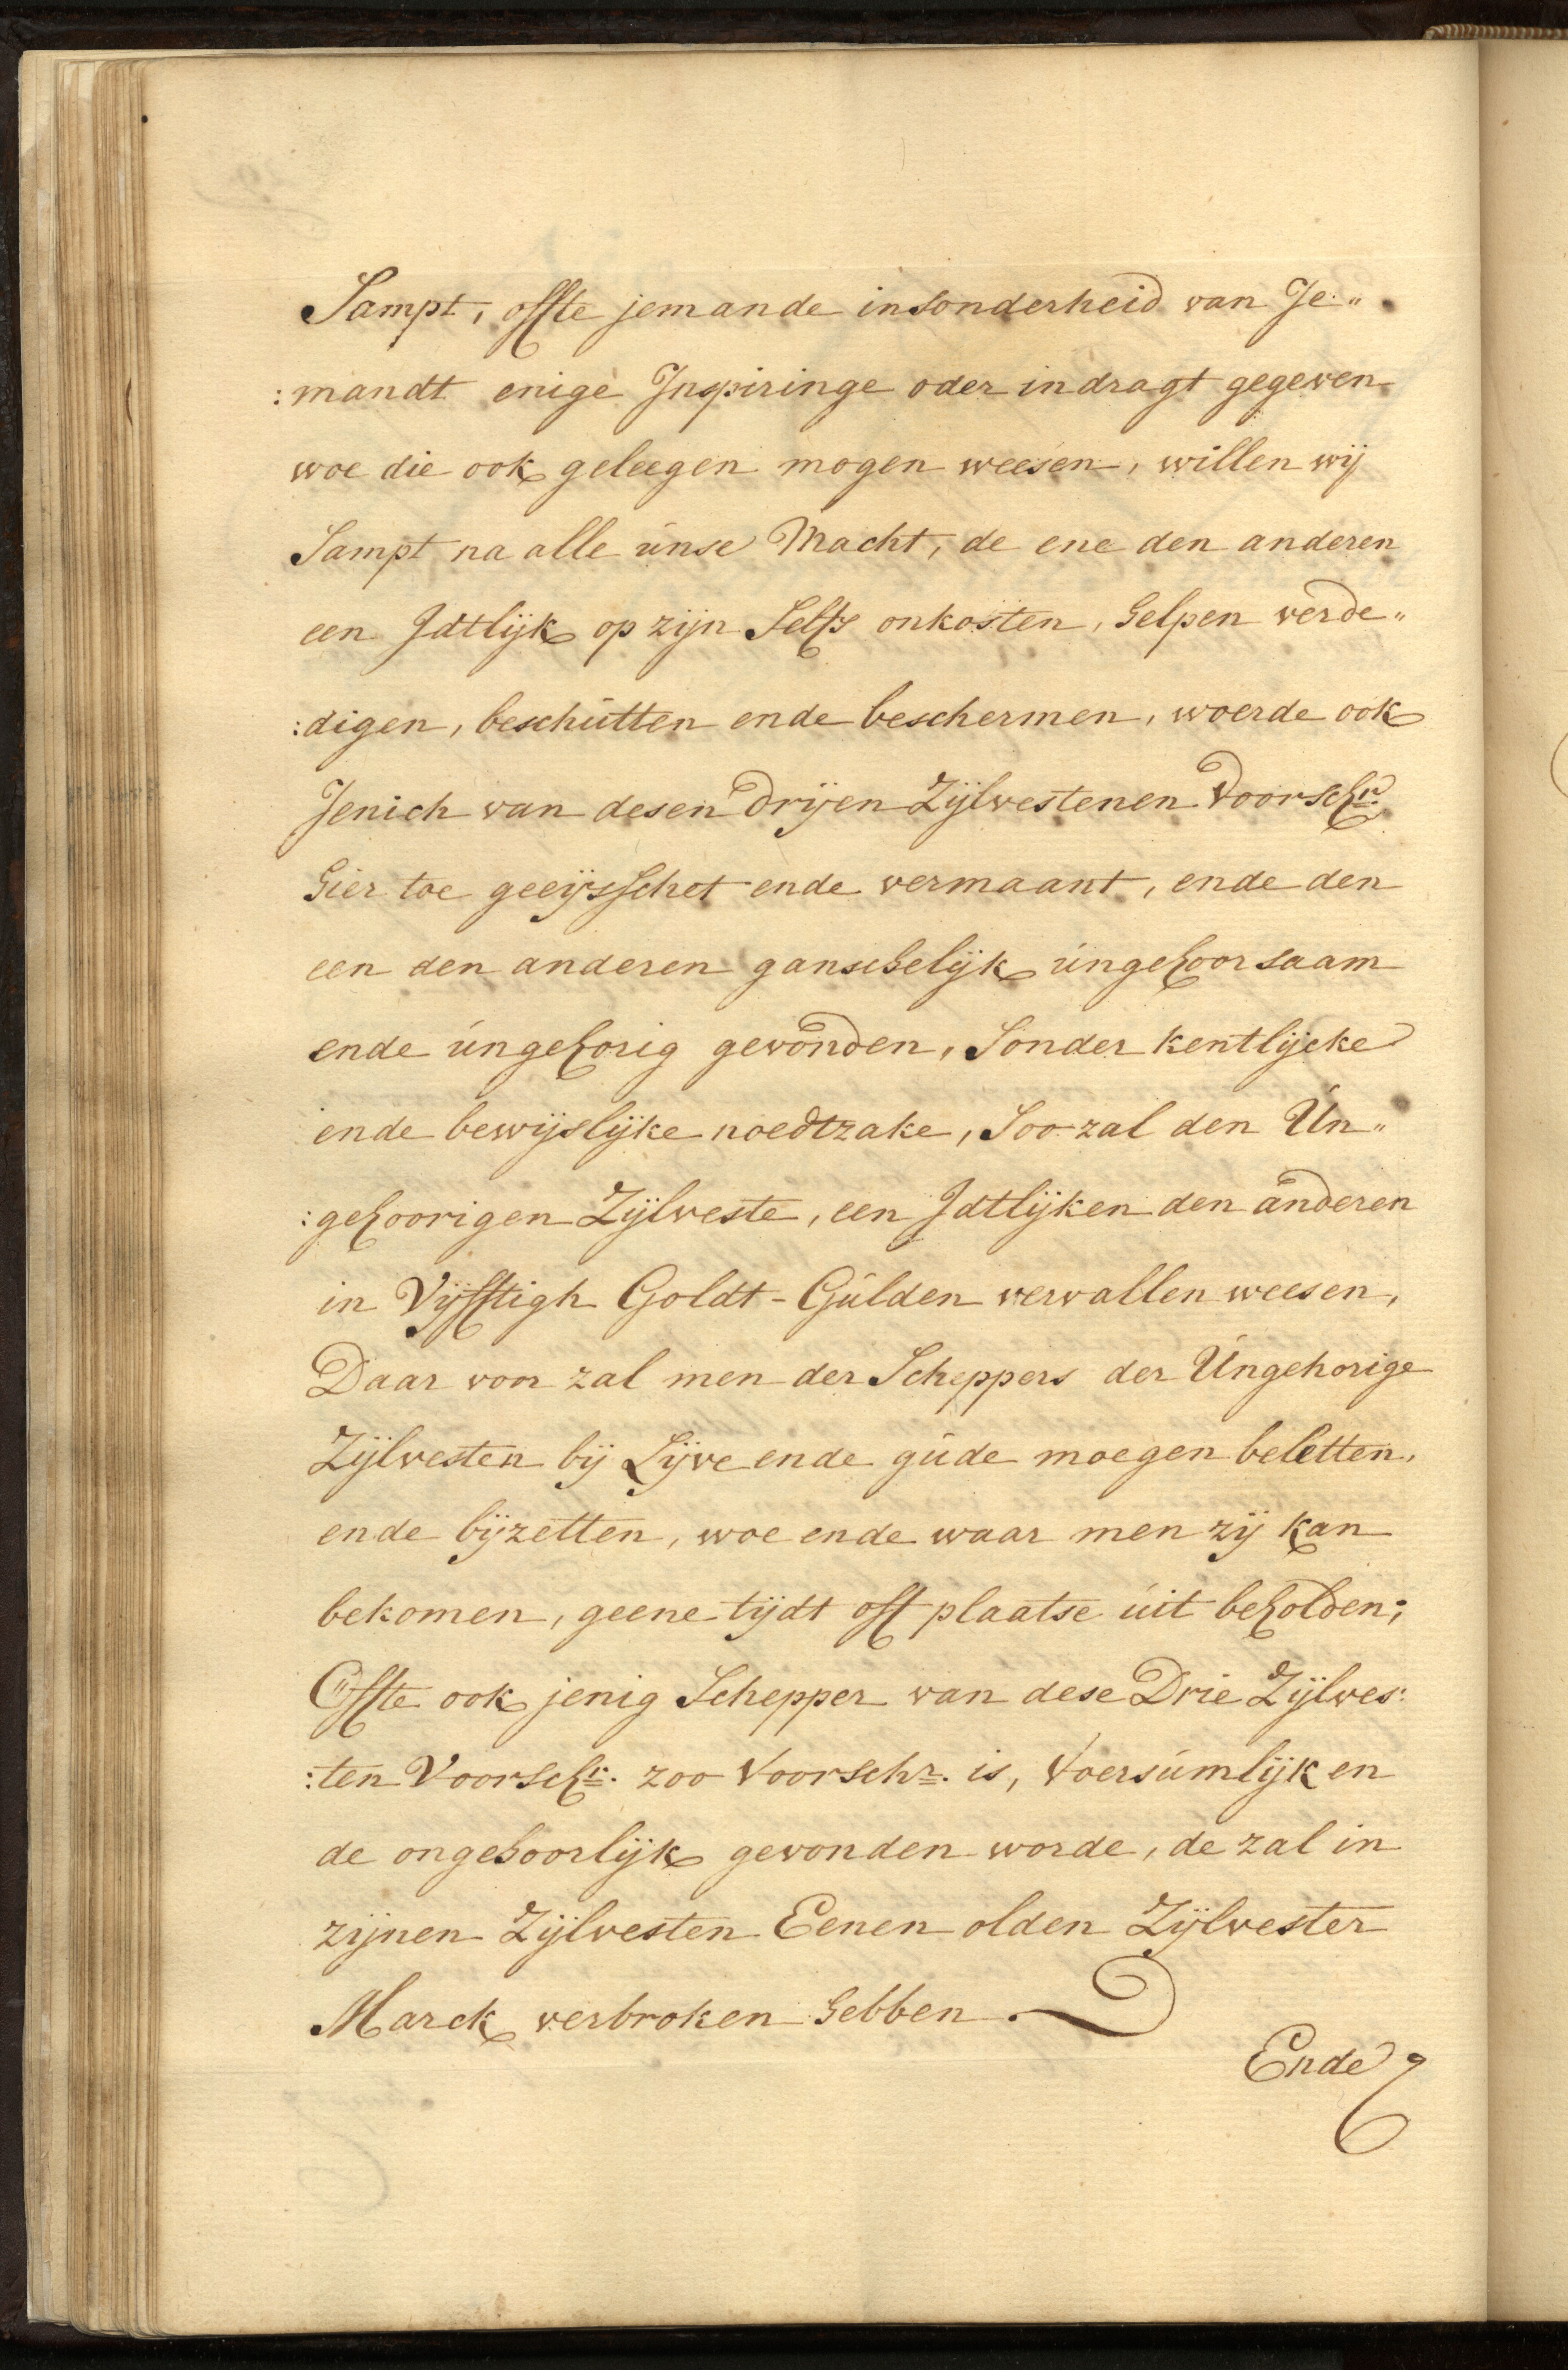 Sampt, offte jemande insonderheid van Je„
:mandt enige Inspiringe oder indragt gegeven
woe die ook geleegen mogen weesen, willen wij
Sampt na alle unse Macht, de ene den anderen
een Idtlijk op zijn Selfs onkosten, helpen verde„
:digen, beschutten ende beschermen, woerde ook
Jenich van desen drijen Zijlvestenen Voorschr.
hier toe geeijsschet ende vermaant, ende den
een den anderen ganschelijk ungehoorsaam
ende ungehorig gevonden, Sonder kentlijcke
ende bewijslijke noedtzake, Soo zal den Un„
:gehoorigen Zijlveste, een Idtlijken den anderen
in Vijfftigh Goldt-Gulden vervallen weesen,
Daar voor zal men der Scheppers der Ungehorige
Zijlvesten bij Lijve ende gude moegen beletten,
ende bijzetten, woe ende waar men zij kan
bekomen, geene tijdt oft plaatse uit beholden;
Offte ook jenig Schepper van dese Drie Zijlves:
:ten Voorschr. zoo Voorschr. is, Voersumlijk en
de ongehoorlijk gevonden worde, de zal in
zijnen Zijlvesten Eenen olden Zijlvester
Marck verbroken hebben.
Ende